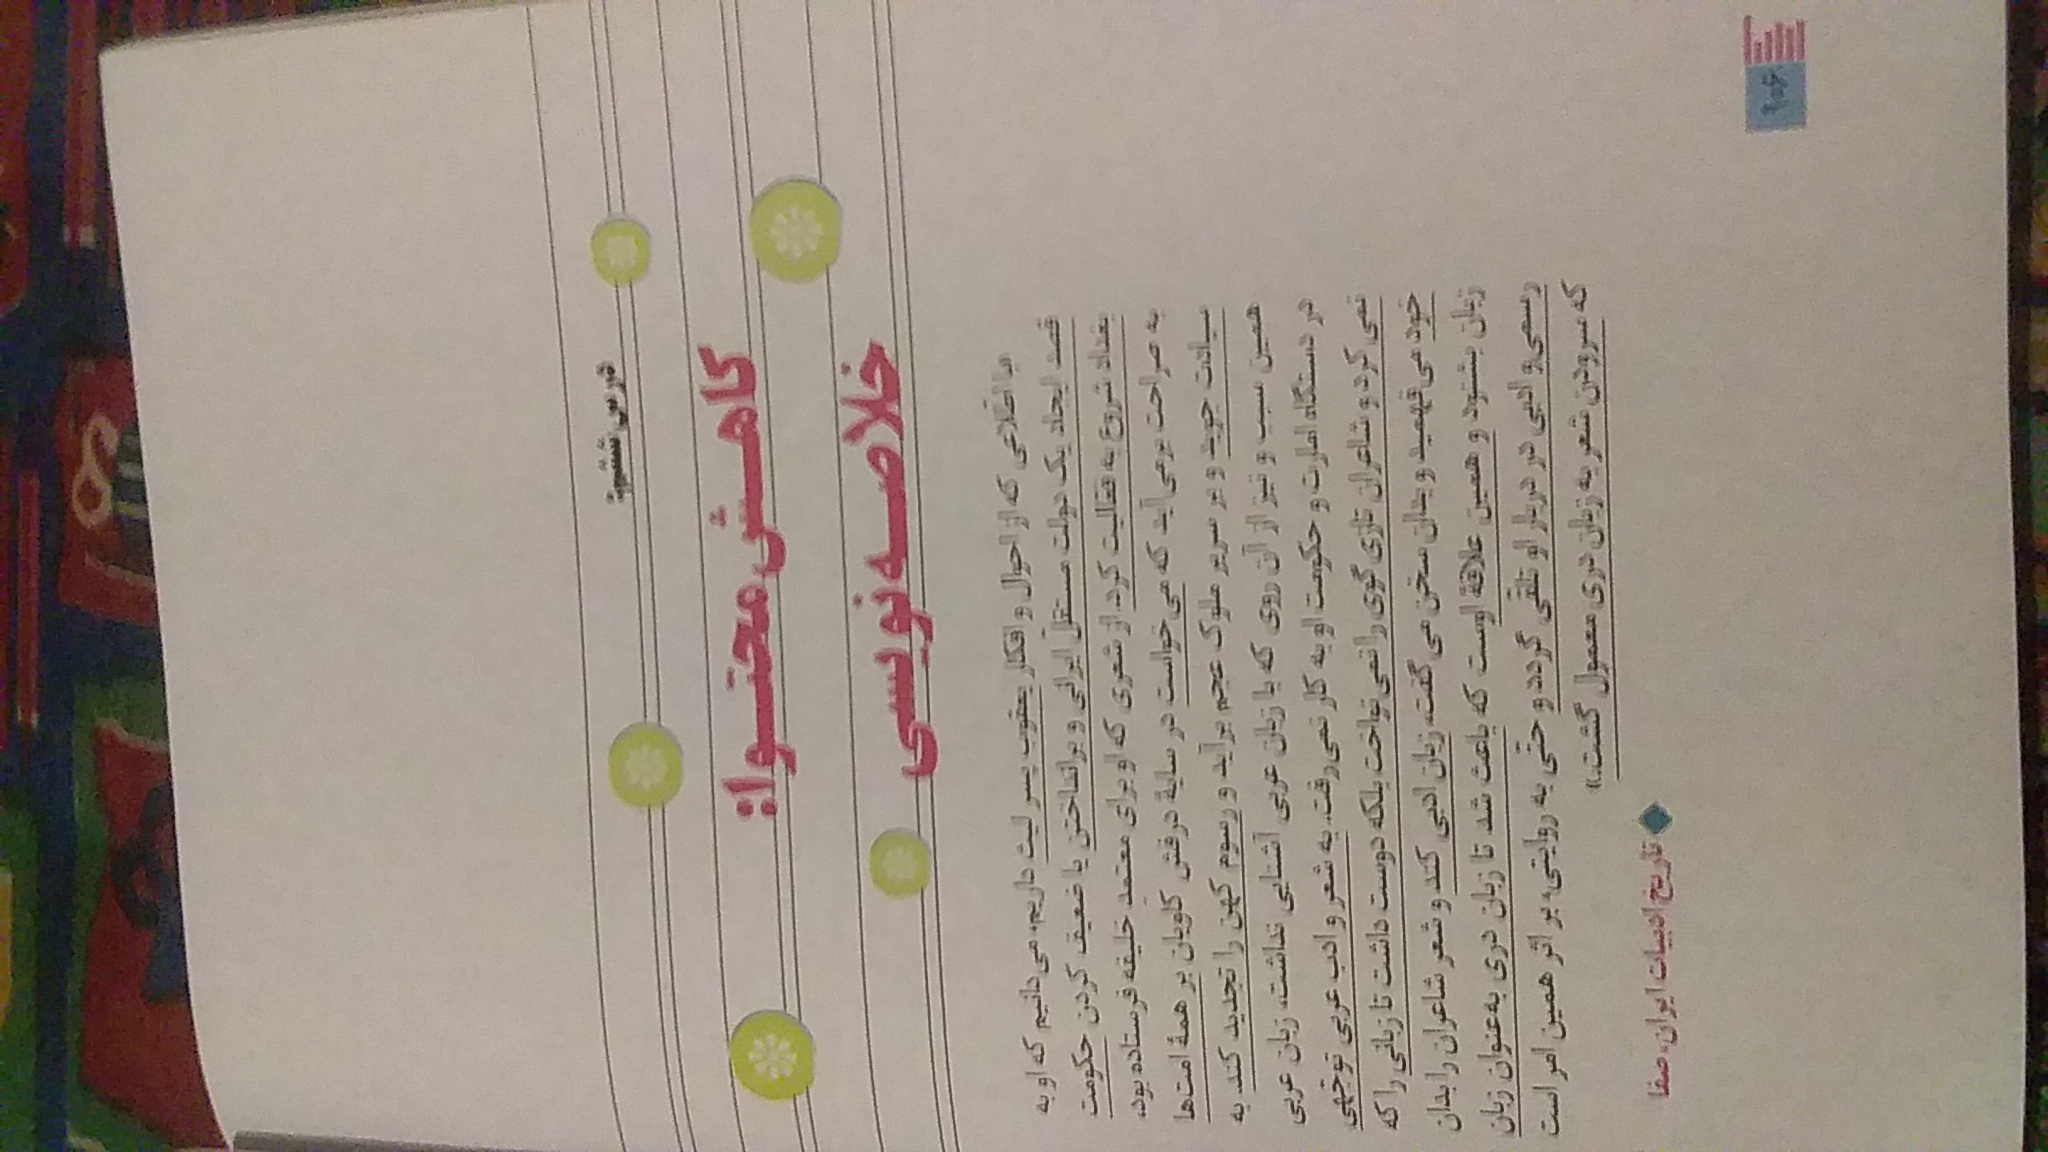 درس ششم:
کاهش محتوا:
خلاصه‌نویسی
«با اطّلاعی که از احوال و افکار یعقوب پسر لیث داریم، می‌دانیم که او به
قصد ایجاد یک دولت مستقلّ ایرانی و برانداختن یا ضعیف کردن حکومت
بغداد شروع به فعّالیت کرد. از شعری که او برای معتمدِ خلیفه فرستاده بود،
به صراحت برمی‌آید که می‌خواست در سایهٔ درفش کاویان بر همهٔ امت‌ها
سیادت جوید و بر سریر ملوک عجم برآید و رسوم کهن را تجدید کند. به
همین سبب و نیز از آن روی که با زبان عربی آشنایی نداشت، زبان عربی
در دستگاه امارت و حکومت او به کار نمی‌رفت. به شعر و ادب عربی توجّهی
نمی‌کرد و شاعران تازی‌گوی را نمی‌نواخت بلکه دوست داشت تا زبانی را که
خود می‌فهمید و بدان سخن می‌گفت، زبان ادبی کند و شعر شاعران را بدان
زبان بشنود و همین علاقهٔ اوست که باعث شد تا زبان دری به‌عنوان زبان
رسمی و ادبی در دربار او تلقّی گردد و حتّی به روایتی، بر اثر همین امر است
که سرودن شعر به زبان دری معمول گشت.»
تاریخ ادبیات ایران، صفا
۱۰۶